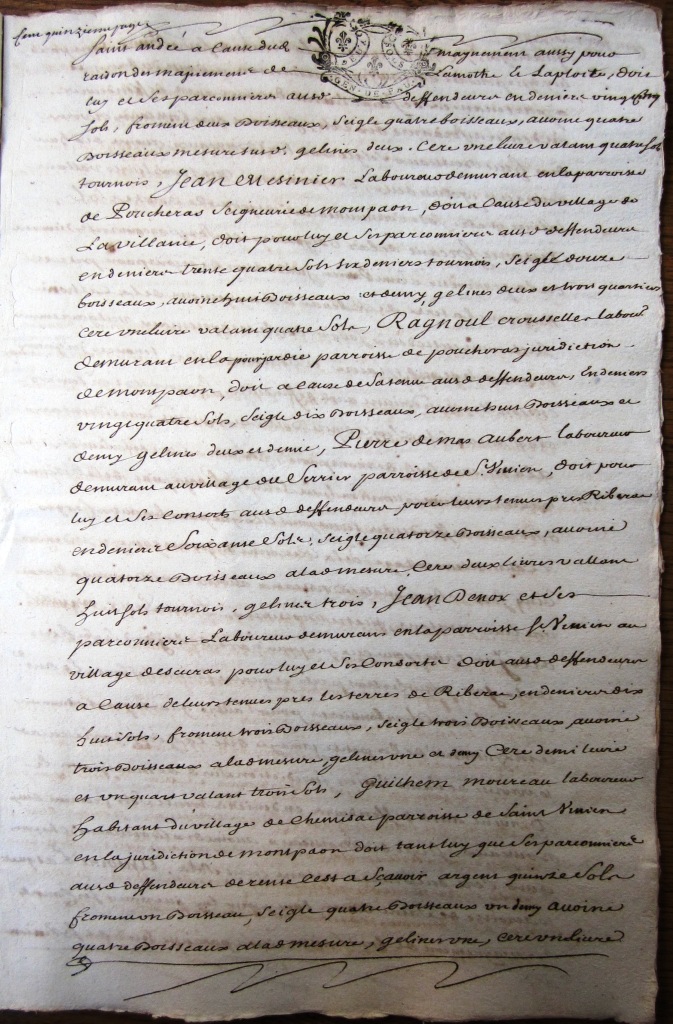 Cent quinzieme page
Saint andré a Cause dud maynement aussy pour
raison du maynement de Lamothe & Laploite, doit
luy et Ses parconniers aud deffendeur en deniers vingt cinq
Sols, froment deux Boisseaux, Seigle quatre boisseaux, avoine quatre
Boisseaux mesure susd. gelines deux. Cere une livre valant quatre sols
tournois, Jean Mesinier Laboureur demurant en la parroisse
de Poucheras Seigneurie de monpaon, doit a Cause du village de
La villanie, doit pour luy et Ses parconniers aud deffendeur
en deniers trente quatre Sols Six deniers tournois, Seigle douze
boisseaux, avoine huit Boisseaux et demy, gelines deux et trois quartiers
Cere une livre valant quatre Sols, Ragnoul crousselle labour
demurant en la pourjardie parroisse de poucheras juridiction
de monpaon, doit a Cause de Sa tenue aud deffendeur, En deniers
vingt quatre Sols, Seigle dix Boisseaux, avoine huit Boisseaux et
demy gelines deux et demie, Pierre de mas Aubert laboureur
demurant au village du Serrier parroisse de St. Vinien, doit pour
luy et Ses Consorts aud deffendeur pour leurs tenues pres Riberac
en deniers Soixante Sols, Seigle quatorze Boisseaux, avoine
quatorze Boisseaux a lad mesure, Cere deux livres vallant
huit sols tournois, gelines trois, Jean Denox et Ses
parconniers Laboureur demurans en la parroisse St. Vinien au
village descuras pour luy et Ses Consorts Doit aud deffendeur
a Cause de leurs tenues pres les terres de Riberac, en deniers dix
huit Sols, froment trois Boisseaux, Seigle trois Boisseaux, avoine
trois Boisseaux a lad mesure, gelines une et demy Cere demi livre
et un quart valant trois Sols, Guilhem moureau laboureur
habitant du village de Chemisac parroisse de Saint Vinien
en la juridiction de montpaon doit tant luy que Ses parconniers
aud deffendeur de rente C'est a Sçavoir argent quinze Sols
froment un Boisseau, Seigle quatre Boisseaux un demy avoine
quatre Boisseaux a lad mesure, gelines une, Cere une livre